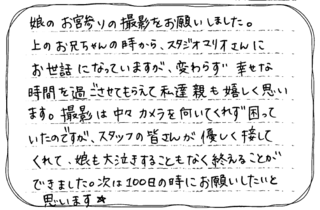 娘のお宮参りの撮影をお願いしました。
上のお兄ちゃんの時から、スタジオマリオさんに
お世話になっていますが、変わらず幸せな
時間を過ごさせてもらえて私達親も嬉しく思い
ます。撮影は中々カメラを向いてくれず困って
いたのですが、スタッフの皆さんが優しく接して
くれて、娘も大泣きすることもなく終えることが
できました。次は100日の時にお願いしたいと
思います★